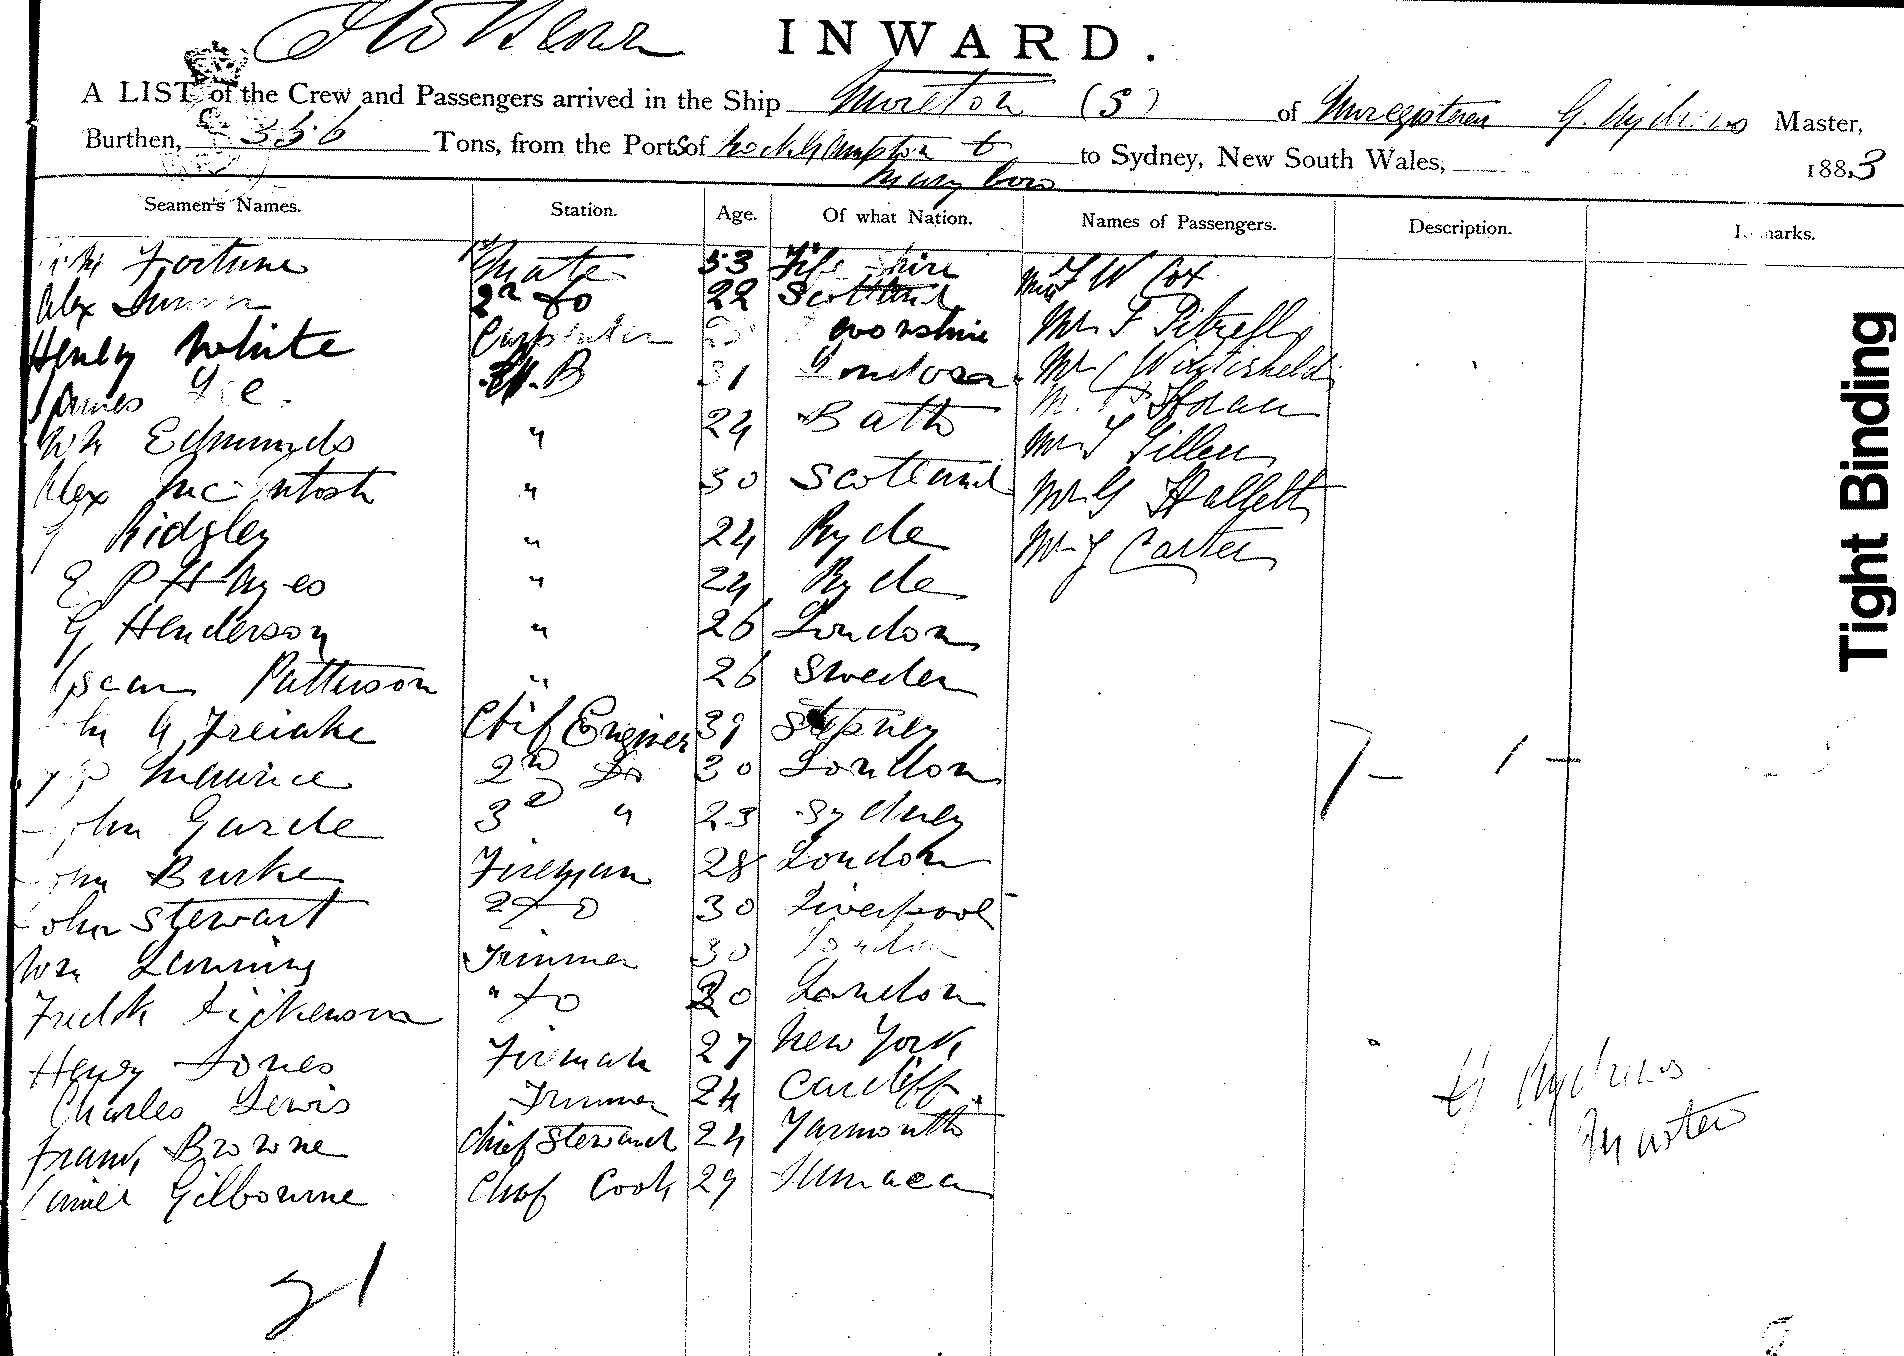 INWARD.
A LIST of the Crew and Passengers arrived in the Ship Moreton (S) of Unregistered G. Master,
Burthen, 356 Tons, from the Ports of Rockhampton & to Sydney, New South Wales, 1883
Maryboro
Seamen's Names. Station. Age. Of what Nation. Names of Passengers. Description. Remarks.
Fortune 1st Mate 53 Fifeshire W Cox
Alex 2nd do 22 Scotland Mr F
Henry White Carpenter Mr
James A.B 31 London Mr
Wm Edmunds " 24 Bath Mr Gillen
Alex McIntosh " 30 Scotland Mr G Hallett
Ridgley " 24 Ryde Mr J Carter
E P Hayes " 24 Ryde
G Henderson " 26 London
Patterson " 26 Sweden
Freiake Chif Enginer 39 Stepney
Maurice 2nd Do 30 London 7 - 1 -
John Garde 3d " 23 Sydney
John Burke Fireman 28 London
John Stewart 2 do 30 Liverpool
Wm Lanning Trimmer 30 London
Fredk Dickenson " do 20 London
Henry Jones Fireman 27 New York
Charles Lewis Trimmer 24 Cardiff
Frank Browne Chief Steward 24 Yarmouth
Gilbourne Chief Cook 29 Jumaca
G
Master
21
Tight Binding